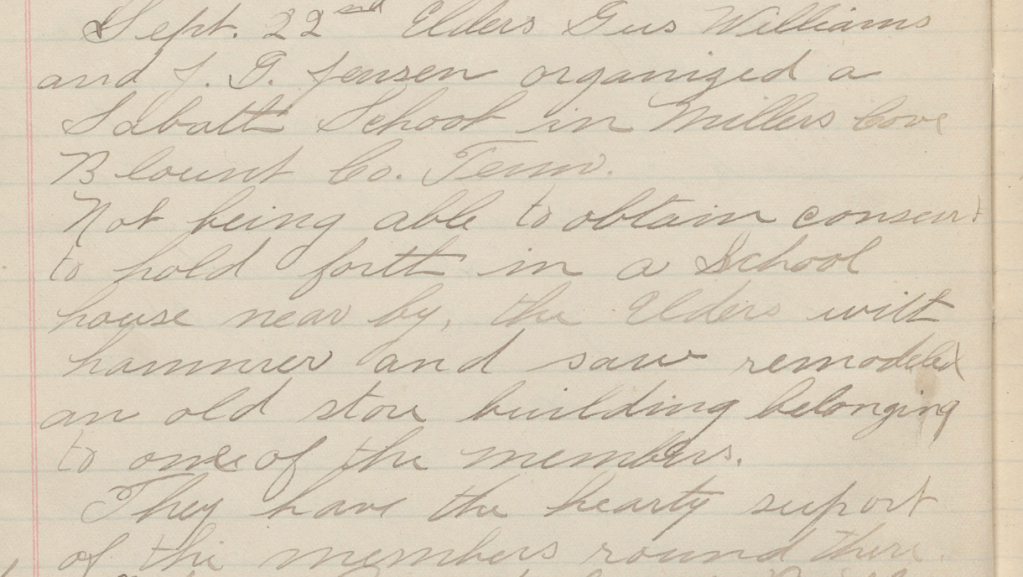 Sept. 22nd Elders Gus Williams
and J. G. Jensen organized a
Sabath School in Millers Cove
Blount Co. Tenn.
Not being able to obtain consent
to hold forth in a School
house near by, the Elders with
hammer and saw remodeled
an old store building belonging
to one of the members.
They have the hearty suport
of the members round there.